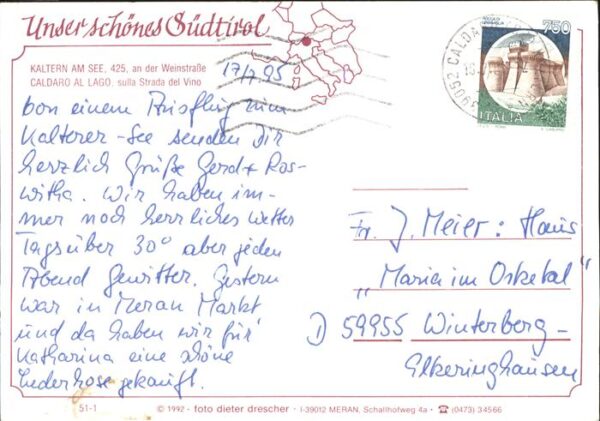 Unser schönes Südtirol
KALTERN AM SEE, 425, an der Weinstraße
CALDARO AL LAGO, sulla Strada del Vino
17/7 95
750
ITALIA
39052 CALDA
von einem Ausflug zum
Kalterer-See senden dir
herzlich Grüße Gerd + Ros-
witha. Wir haben im-
mer noch herrliches Wetter
Tagsüber 30° aber jeden
Abend Gewitter. Gestern
war in Meran Markt
und da haben wir für
Katharina eine schöne
Lederhose gekauft.
Fr. J. Meier: Haus
„Maria im Osketal"
D 59955 Winterberg-
Elkeringhausen
51-1
© 1992 - foto dieter drescher · I-39012 MERAN, Schallhofweg 4a · ☎ (0473) 34566